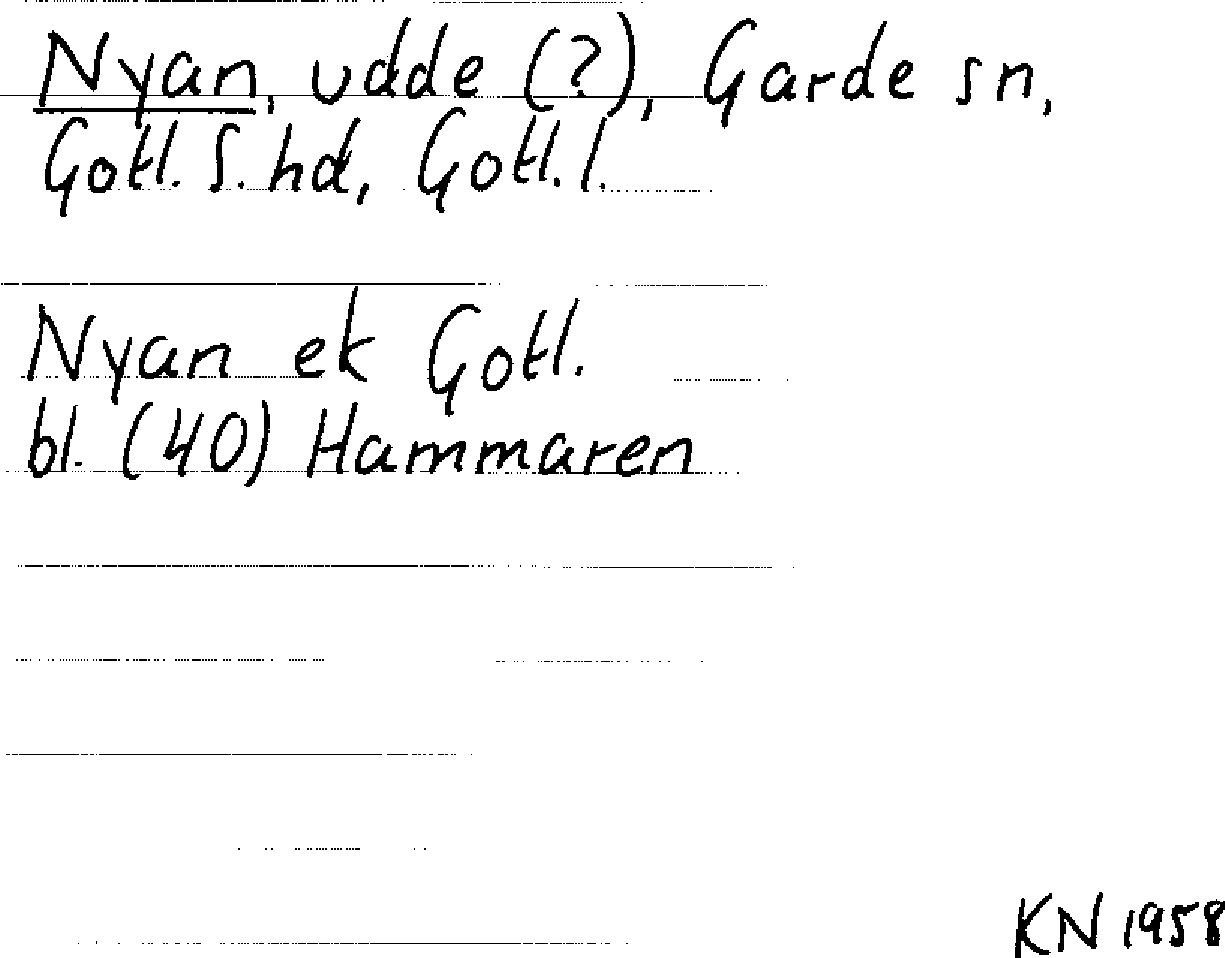 Nyan, udde (?), Garde sn,
Gotl. S. hd, Gotl. l.
Nyan ek Gotl.
bl. (40) Hammaren
KN 1958